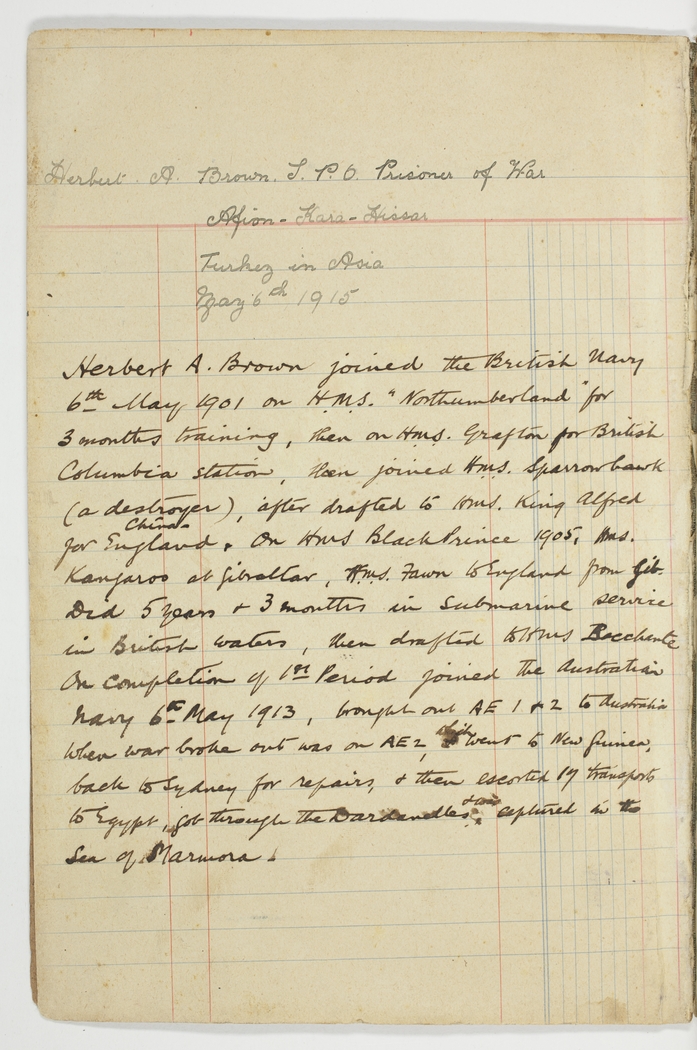 Herbert. A. Brown. S. P. O. Prisoner of War
Afion-Kara-Hissar
Turkey in Asia
May 6th 1915
Herbert A. Brown joined the British Navy
6th May 1901 on H.M.S. "Northumberland" for
3 months training, then on H.M.S. Grafton for British
Columbia station, then joined H.M.S. Sparrowhawk
(a destroyer), after drafted to H.M.S. King Alfred
China
for England. On HMS Black Prince 1905, H.M.S.
Kangaroo at Gibraltar, H.M.S. Fawn to England from Gib.
Did 5 years & 3 months in submarine service
in British waters, then drafted to HMS Bacchante
On completion of 1st Period joined the Australian
Navy 6th May 1913, brought out AE 1 & 2 to Australia
When war broke out was on AE2, which went to New Guinea,
back to Sydney for repairs, & then escorted 19 transports
to Egypt, got through the Dardanelles & was captured in the
Sea of Marmora.